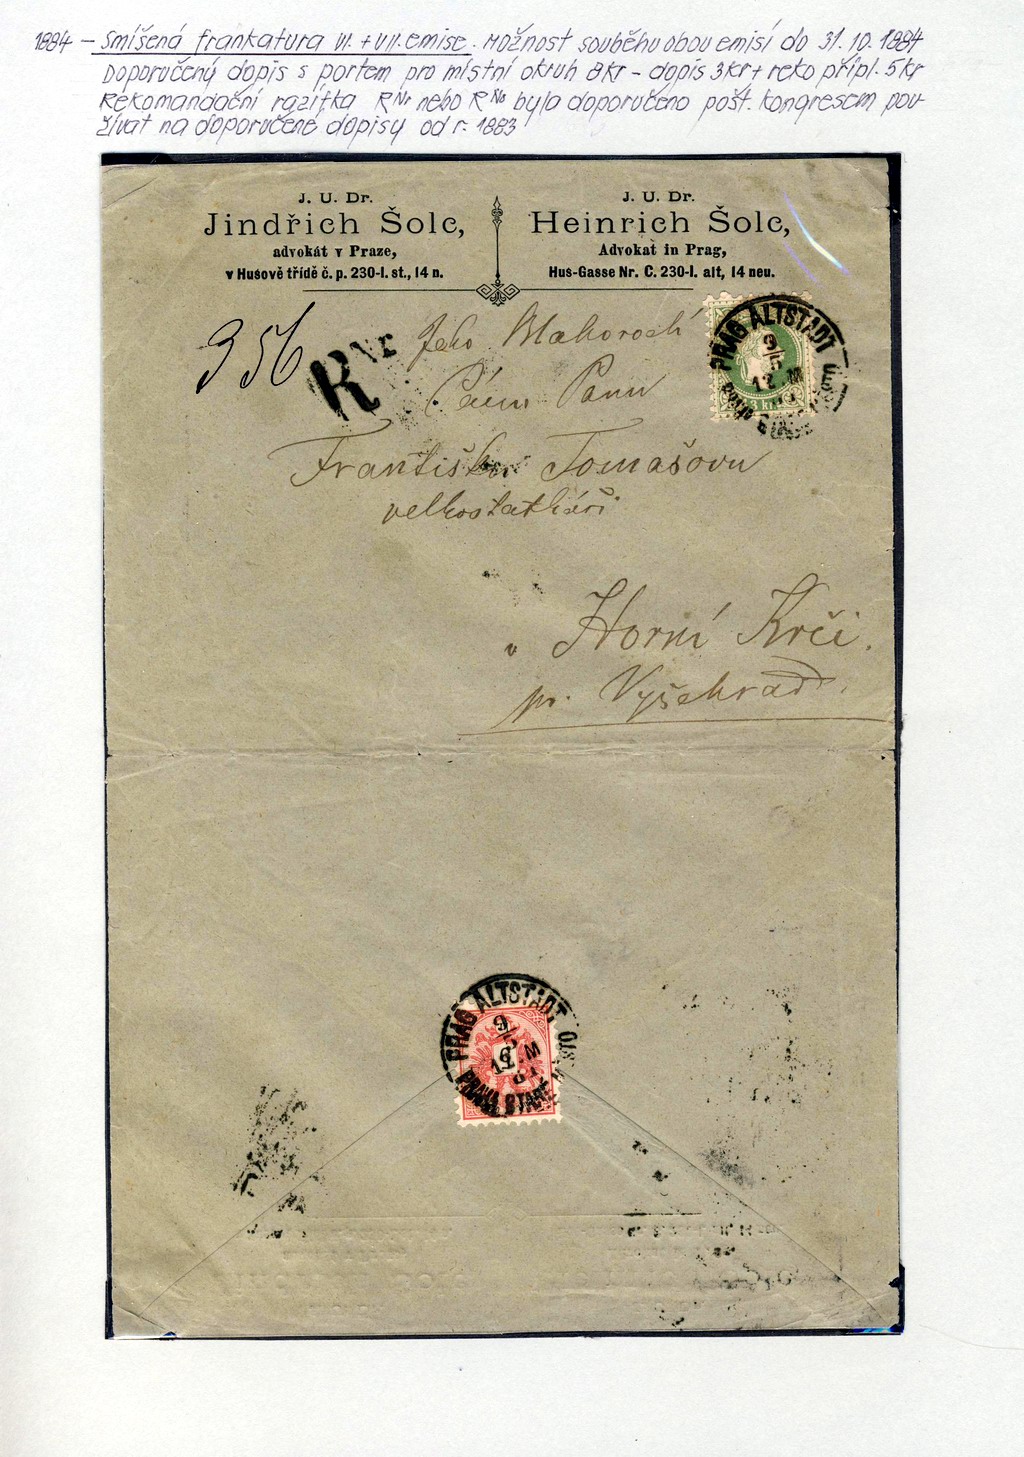 1884 - Smíšená frankatura VI. + VII. emise. Možnost souběhu obou emisí do 31.10.1884
Doporučený dopis s portem pro místní okruh 8kr - dopis 3kr + reko přípl. 5kr
Rekomandační razítka R Nr nebo R No bylo doporučeno pošt. kongresem pou-
žívat na doporučené dopisy od r. 1883
J. U. Dr.
Jindřich Šolc,
advokát v Praze,
v Husově třídě č. p. 230-I. st., 14 n.
J. U. Dr.
Heinrich Šolc,
Advokat in Prag,
Hus-Gasse Nr. C. 230-I. alt, 14 neu.
356
R Nr
Jeho
Pánu Panu
Františku Tomašovu
velkostatkáři
v Horní Krči.
pr. Vyšehrad.
PRAG ALTSTADT
9/5
12.M
3 kr
PRAG ALTSTADT
9/5
12.M
84
PRAHA STARÉ